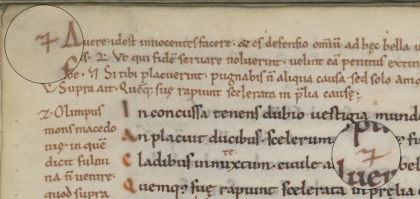 uere · idest innocentes facere · & es defensio omiū ad hęc bella u
Vt qui fidē seruare noluerint · uelint eā penitus extin
Si tibi placuerint · pugnabis ñ aliqua causa sed solo amo
Supra ait · Quęq; suę rapiunt scelerata in p̄lia causę ;
z · Olimpus
mons macedo
nię · in quē
dicit fulmi
na ñ uenire ·
quod supra
In concussa tenens dubio uestigia mund
An placuit ducibus · scelerum
Cladibus inmixtum · ciuile a bel
Quemq; suę rapiunt scelerata in prelia c